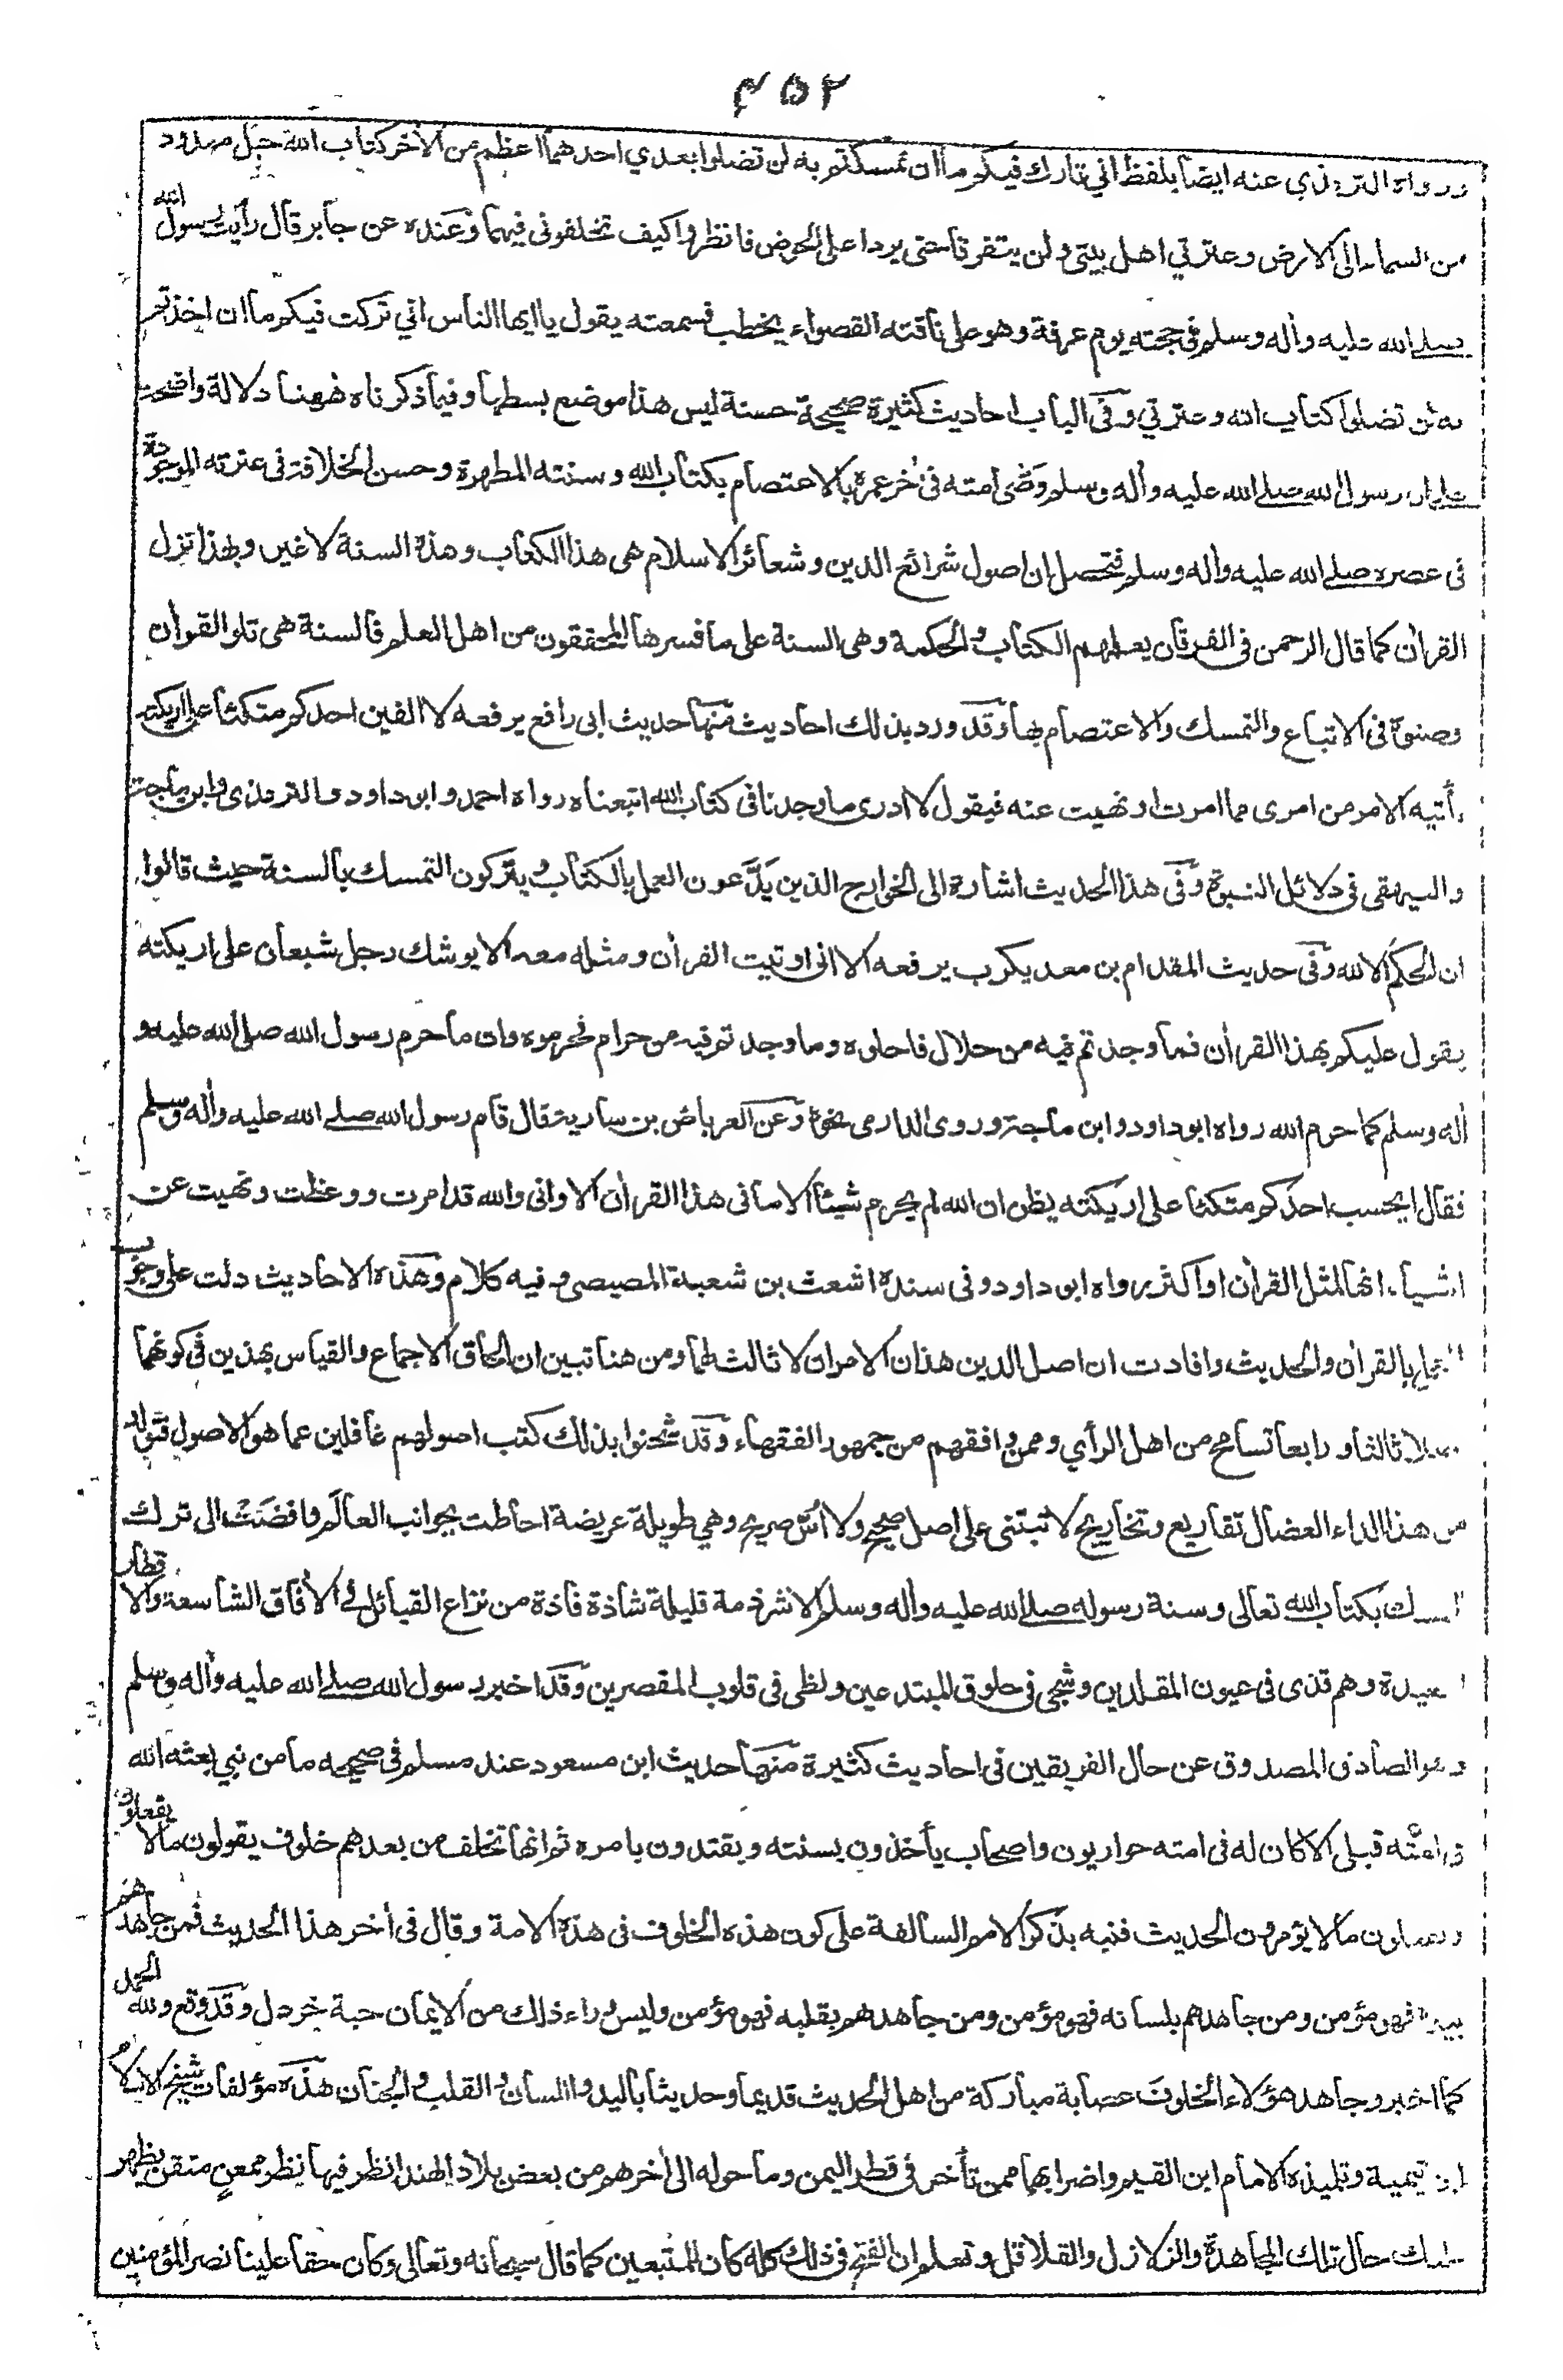 ۴۵۲
ورواه الترمذي عنه ايضا بلفظ اني تارك فيكم ما ان تمسكتم به لن تضلوا بعدي احدهما اعظم من الأخر كتاب الله حبل ممدود
من السماء الى الارض وعترتي اهل بيتي ولن يتفرقا حتى يردا على الحوض فانظروا كيف تخلفوني فيهما وعنده عن جابر قال رأيت رسول الله
صلے الله عليه وأله وسلم في حجته يوم عرفة وهو على ناقته القصواء يخطب فسمعته يقول يا ايها الناس اني تركت فيكم ما ان اخذتم
به لن تضلوا كتاب الله وعترتي وفى الباب احاديث كثيرة صحيحة حسنة ليس هذا موضع بسطها وفيما ذكرناه ههنا دلالة واضحة
على ان رسول الله صلے الله عليه وأله وسلم وصّى امته فى أخر عمره بالاعتصام بكتاب الله وسنته المطهرة وحسن الخلافة فى عترته الموجودة
فى عصره صلے الله عليه وأله وسلم فتحصل ان اصول شرائع الدين وشعائر الاسلام هى هذا الكتاب وهذه السنة لا غير وبهذا نزل
القرأن كما قال الرحمن فى الفرقان يعلمهم الكتاب والحكمة وهى السنة على ما فسرها المحققون من اهل العلم فالسنة هى تلو القرأن
وصنوه فى الاتباع والتمسك والاعتصام بها وقد ورد بذلك احاديث منها حديث ابى رافع يرفعه لا الفين احدكم متكئا على اريكته
يأتيه الامر من امرى مما امرت او نهيت عنه فيقول لا ادرى ما وجدنا فى كتاب الله اتبعناه رواه احمد وابو داود والترمذى وابن ماجة
والبيهقى فى دلائل النبوة وفى هذا الحديث اشارة الى الخوارج الذين يَدَّعون العمل بالكتاب ويتركون التمسك بالسنة حيث قالوا
ان الحكم الا لله وفى حديث المقدام بن معديكرب يرفعه الا انى اوتيت القرأن ومثله معه الا يوشك رجل شبعان على اريكته
يقول عليكم بهذا القرأن فما وجدتم فيه من حلال فاحلوه وما وجدتم فيه من حرام فحرموه وان ما حرم رسول الله صلى الله عليه و
أله وسلم كما حرم الله رواه ابو داود وابن ماجة وروى الدارمى نحوه وعن العرباض بن سارية قال قام رسول الله صلے الله عليه وأله وسلم
فقال ايحسب احدكم متكئا على اريكته يظن ان الله لم يحرم شيئا الا ما فى هذا القرأن الا وانى والله قد امرت ووعظت ونهيت عن
اشياء انها لمثل القرأن او اكثر رواه ابو داود وفى سنده اشعث بن شعبة المصيصى وفيه كلام وهذه الاحاديث دلت على وجوب
العمل بالقرأن والحديث وافادت ان اصل الدين هذان الامران لا ثالث لهما ومن هنا تبين ان الحاق الاجماع والقياس بهذين فى كونهما
اصلا ثالثا ورابعا تسامح من اهل الرأي وممن وافقهم من جمهور الفقهاء وقد شحنوا بذلك كتب اصولهم غافلين عما هو الاصول فتولد
من هذا الداء العضال تفاريع وتخاريج لا تبتنى على اصل صحيح ولا اُسّ صريح وهي طويلة عريضة احاطت بجوانب العالَم وافضَت الى ترك
التمسك بكتاب الله تعالى وسنة رسوله صلے الله عليه وأله وسلم الا شرذمة قليلة شاذة فاذة من نزاع القبائل في الأفاق الشاسعة والاقطار
البعيدة وهم قذى فى عيون المقلدين وشجى فى حلوق المبتدعين ولظى فى قلوب المقصرين وقد اخبر رسول الله صلے الله عليه وأله وسلم
وهو الصادق المصدوق عن حال الفريقين فى احاديث كثيرة منها حديث ابن مسعود عند مسلم في صحيحه ما من نبي بعثه الله
فى امته قبلى الا كان له فى امته حواريون واصحاب يأخذون بسنته ويقتدون بامره ثم انها تخلف من بعدهم خلوف يقولون ما لا يفعلون
ويفعلون ما لا يؤمرون الحديث فنبه بذكر الامم السالفة على كون هذه الخلوف فى هذه الامة وقال فى أخر هذا الحديث فمن جاهدهم
بيده فهو مؤمن ومن جاهدهم بلسانه فهو مؤمن ومن جاهدهم بقلبه فهو مؤمن وليس وراء ذلك من الايمان حبة خردل وقد وقع ولله الحمد
كما اخبر وجاهد هؤلاء الخلوفَ عصابة مباركة من اهل الحديث قديما وحديثا باليد واللسان والقلب والجنان هذه مؤلفات شيخ الاسلام
ابن تيمية وتلميذه الامام ابن القيم واضرابهما ممن تأخر فى قطر اليمن وما حوله الى أخرهم من بعض بلاد الهند انظر فيها نظر ممعنٍ متقن يظهر
عليك حال تلك المجاهدة والزلازل والقلاقل وتعلم ان الفتح فى ذلك كله كان للمتبعين كما قال سبحانه وتعالى وكان حقا علينا نصر المؤمنين